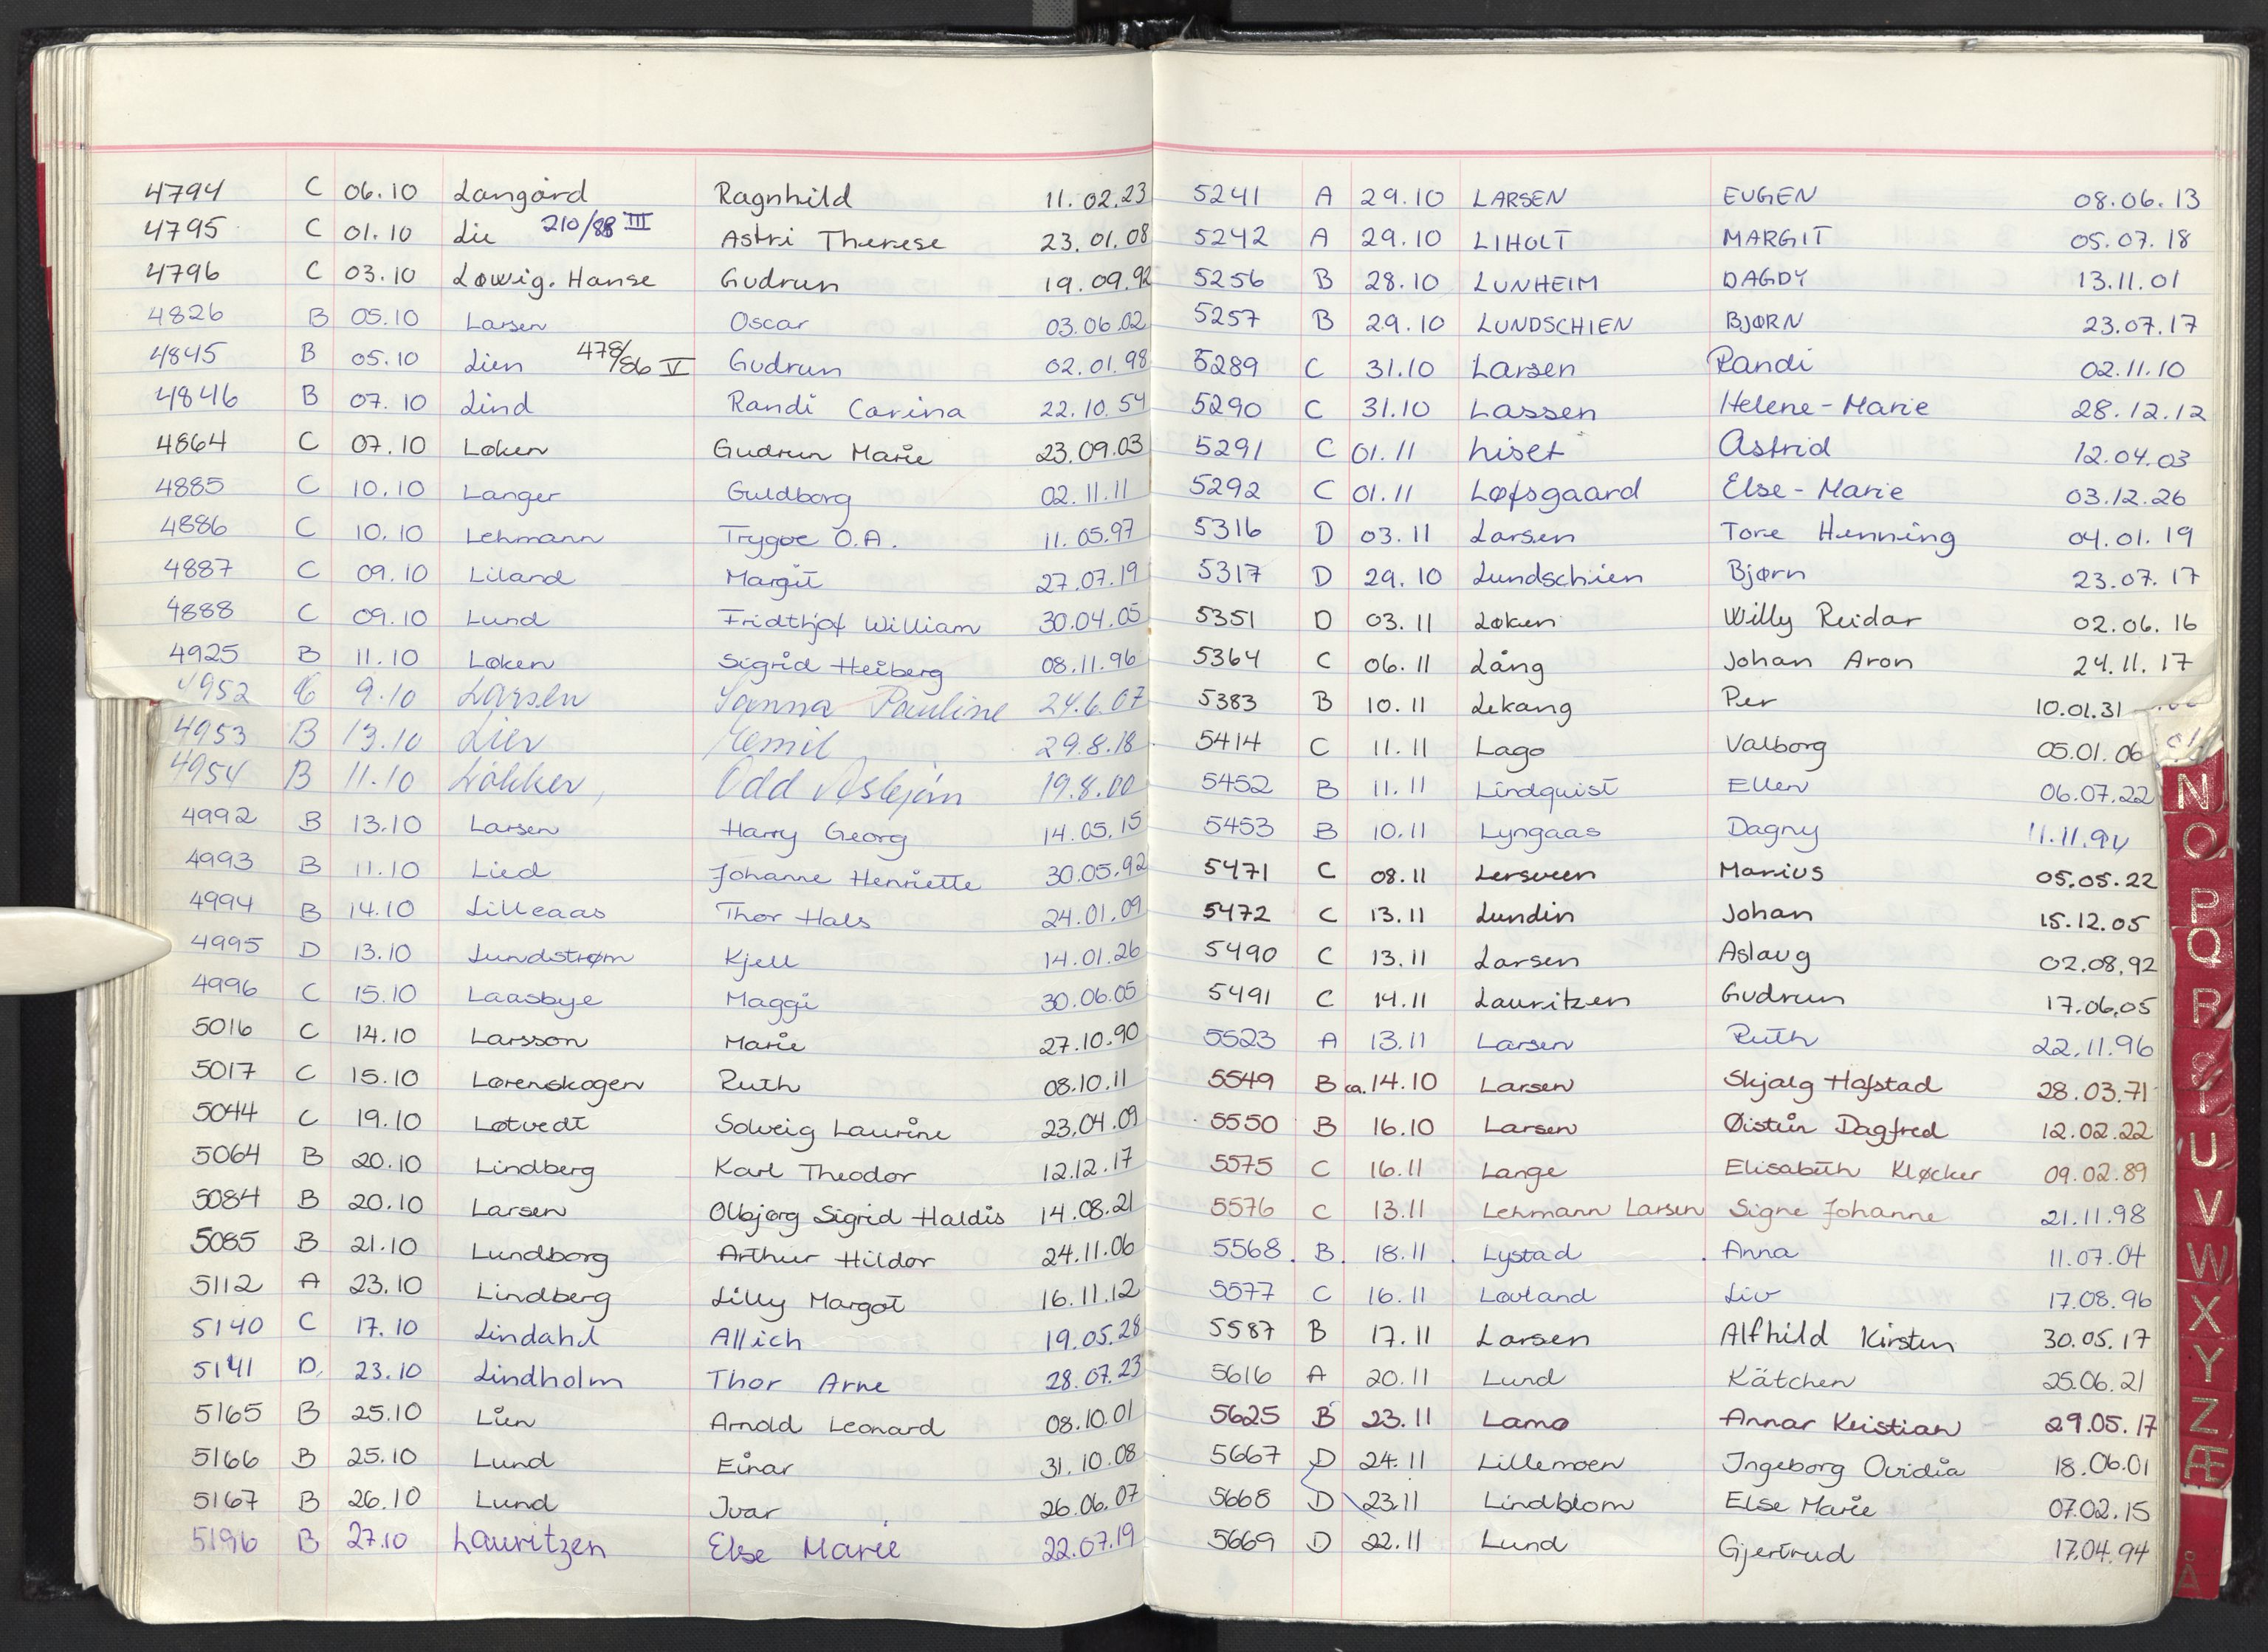 4794 C 06.10 Langård Ragnhild 11.02.23
4795 C 01.10 Lie 210/88 III Astri Therese 23.01.08
4796 C 03.10 Løwig. Hanse Gudrun 19.09.92
4826 B 05.10 Larsen Oscar 03.06.02
4845 B 05.10 Lien 478/86 V Gudrun 02.01.98
4846 B 07.10 Lind Randi Carina 22.10.54
4864 C 07.10 Løken Gudrun Marie 23.09.03
4885 C 10.10 Langer Guldborg 02.11.11
4886 C 10.10 Lehmann Trygve O.A. 11.05.97
4887 C 09.10 Liland Margit 27.07.19
4888 C 09.10 Lund Fridthjof William 30.04.05
4925 B 11.10 Løken Sigrid Heiberg 08.11.96
4952 9.10 Larsen Sanna Pauline 24.6.07
4953 B 13.10 Lier Emil 29.8.18
4954 B 11.10 Løkker, Odd Asbjørn 19.8.00
4992 B 13.10 Larsen Harry Georg 14.05.15
4993 B 11.10 Lied Johanne Henriette 30.05.92
4994 B 14.10 Lilleaas Thor Hals 24.01.09
4995 D 13.10 Lundstrøm Kjell 14.01.26
4996 C 15.10 Laasbye Maggi 30.06.05
5016 C 14.10 Larsson Marie 27.10.90
5017 C 15.10 Lørenskogen Ruth 08.10.11
5044 C 19.10 Løtvedt Solveig Laurine 23.04.09
5064 B 20.10 Lindberg Karl Theodor 12.12.17
5084 B 20.10 Larsen Olbjørg Sigrid Haldis 14.08.21
5085 B 21.10 Lundborg Arthur Hildor 24.11.06
5112 A 23.10 Lindberg Lilly Margot 16.11.12
5140 C 17.10 Lindahl Allich 19.05.28
5141 D. 23.10 Lindholm Thor Arne 28.07.23
5165 B 25.10 Lien Arnold Leonard 08.10.01
5166 B 25.10 Lund Einar 31.10.08
5167 B 26.10 Lund Ivar 26.06.07
5196 B 27.10 Lauritzen Else Marie 22.07.19
5241 A 29.10 LARSEN EUGEN 08.06.13
5242 A 29.10 LIHOLT MARGIT 05.07.18
5256 B 28.10 LUNHEIM DAGDY 13.11.01
5257 B 29.10 LUNDSCHIEN BJØRN 23.07.17
5289 C 31.10 Larsen Randi 02.11.10
5290 C 31.10 Lassen Helene-Marie 28.12.12
5291 C 01.11 Liset Astrid 12.04.03
5292 C 01.11 Løfsgaard Else-Marie 03.12.26
5316 D 03.11 Larsen Tore Henning 04.01.19
5317 D 29.10 Lundschien Bjørn 23.07.17
5351 D 03.11 Løken Willy Reidar 02.06.16
5364 C 06.11 Lång Johan Aron 24.11.17
5383 B 10.11 Lekang Per 10.01.31
5414 C 11.11 Lagø Valborg 05.01.06
5452 B 11.11 Lindquist Ellen 06.07.22
5453 B 10.11 Lyngaas Dagny 11.11.94
5471 C 08.11 Lersveen Marius 05.05.22
5472 C 13.11 Lundin Johan 15.12.05
5490 C 13.11 Larsen Aslaug 02.08.92
5491 C 14.11 Lauritzen Gudrun 17.06.05
5523 A 13.11 Larsen Ruth 22.11.96
5549 B ca. 14.10 Larsen Skjalg Hafstad 28.03.71
5550 B 16.10 Larsen Øistein Dagfred 12.02.22
5575 C 16.11 Lange Elisabeth Kløcker 09.02.89
5576 C 13.11 Lehmann Larsen Signe Johanne 21.11.98
5568. B. 18.11 . Lystad . Anna 11.07.04
5577 C 16.11 Løvland Liv 17.08.96
5587 B 17.11 Larsen Alfhild Kirsten 30.05.17
5616 A 20.11 Lund Kätchen 25.06.21
5625 B 23.11 Lamo Annar Kristian 29.05.17
5667 D 24.11 Lillemoen Ingeborg Ovidia 18.06.01
5668 D 23.11 Lindblom Else Marie 07.02.15
5669 D 22.11 Lund Gjertrud 17.04.94
N
O
P
Q
R
S
T
U
V
W
X
Y
Z
Æ
Å